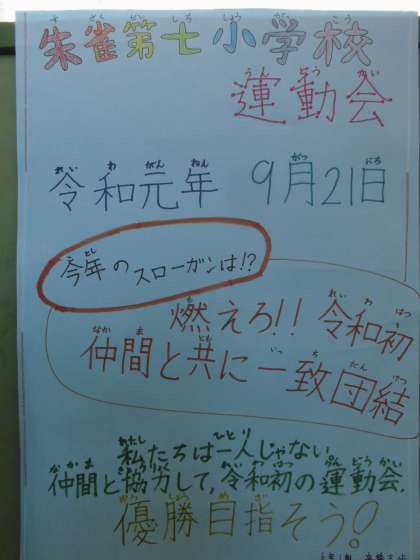 朱雀第七小学校
運動会
令和元年 9月21日
今年のスローガンは!?
燃えろ!! 令和初
仲間と共に一致団結
私たちは一人じゃない
仲間と協力して,令和初の運動会,
優勝目指そう!